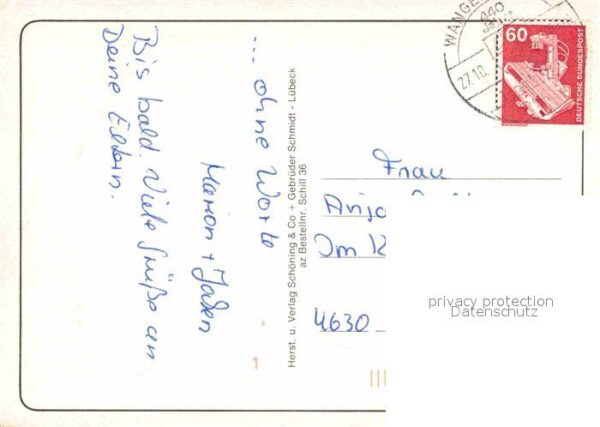 ... ohne Worte
Marion + Jochen
Bis bald. Viele Grüße an
Deine Eltern.
Herst. u. Verlag Schöning & Co + Gebrüder Schmidt - Lübeck
az Bestellnr. Schill 36
WANGE
440
27.10.
60
DEUTSCHE BUNDESPOST
Frau
Anja
Im
4630
privacy protection
Datenschutz